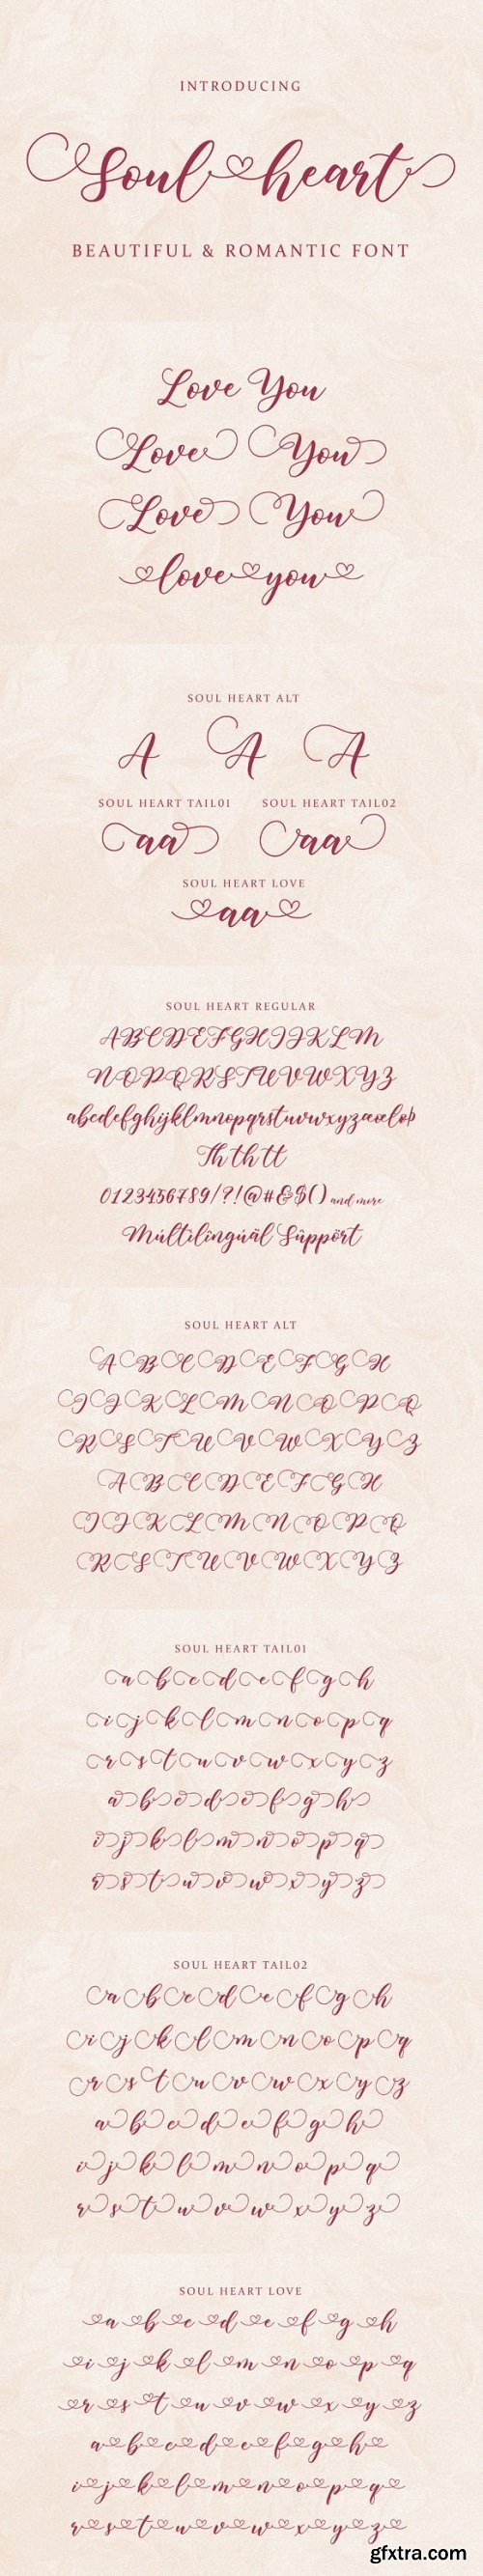 INTRODUCING
Soul heart
BEAUTIFUL & ROMANTIC FONT
Love You
Love You
Love You
love you
SOUL HEART ALT
A A A
SOUL HEART TAIL01 SOUL HEART TAIL02
aa aa
SOUL HEART LOVE
aa
SOUL HEART REGULAR
ABCDEFGHIJKLM
NOPQRSTUVWXYZ
abcdefghijklmnopqrstuvwxyzæœłøþ
Th th tt
0123456789/?!@#&$() and more
Múltilingúäl Sûppört
SOUL HEART ALT
A B C D E F G H
I J K L M N O P Q
R S T U V W X Y Z
A B C D E F G H
I J K L M N O P Q
R S T U V W X Y Z
SOUL HEART TAIL01
a b c d e f g h
i j k l m n o p q
r s t u v w x y z
a b c d e f g h
i j k l m n o p q
r s t u v w x y z
SOUL HEART TAIL02
a b c d e f g h
i j k l m n o p q
r s t u v w x y z
a b c d e f g h
i j k l m n o p q
r s t u v w x y z
SOUL HEART LOVE
a b c d e f g h
i j k l m n o p q
r s t u v w x y z
a b c d e f g h
i j k l m n o p q
r s t u v w x y z
gfxtra.com